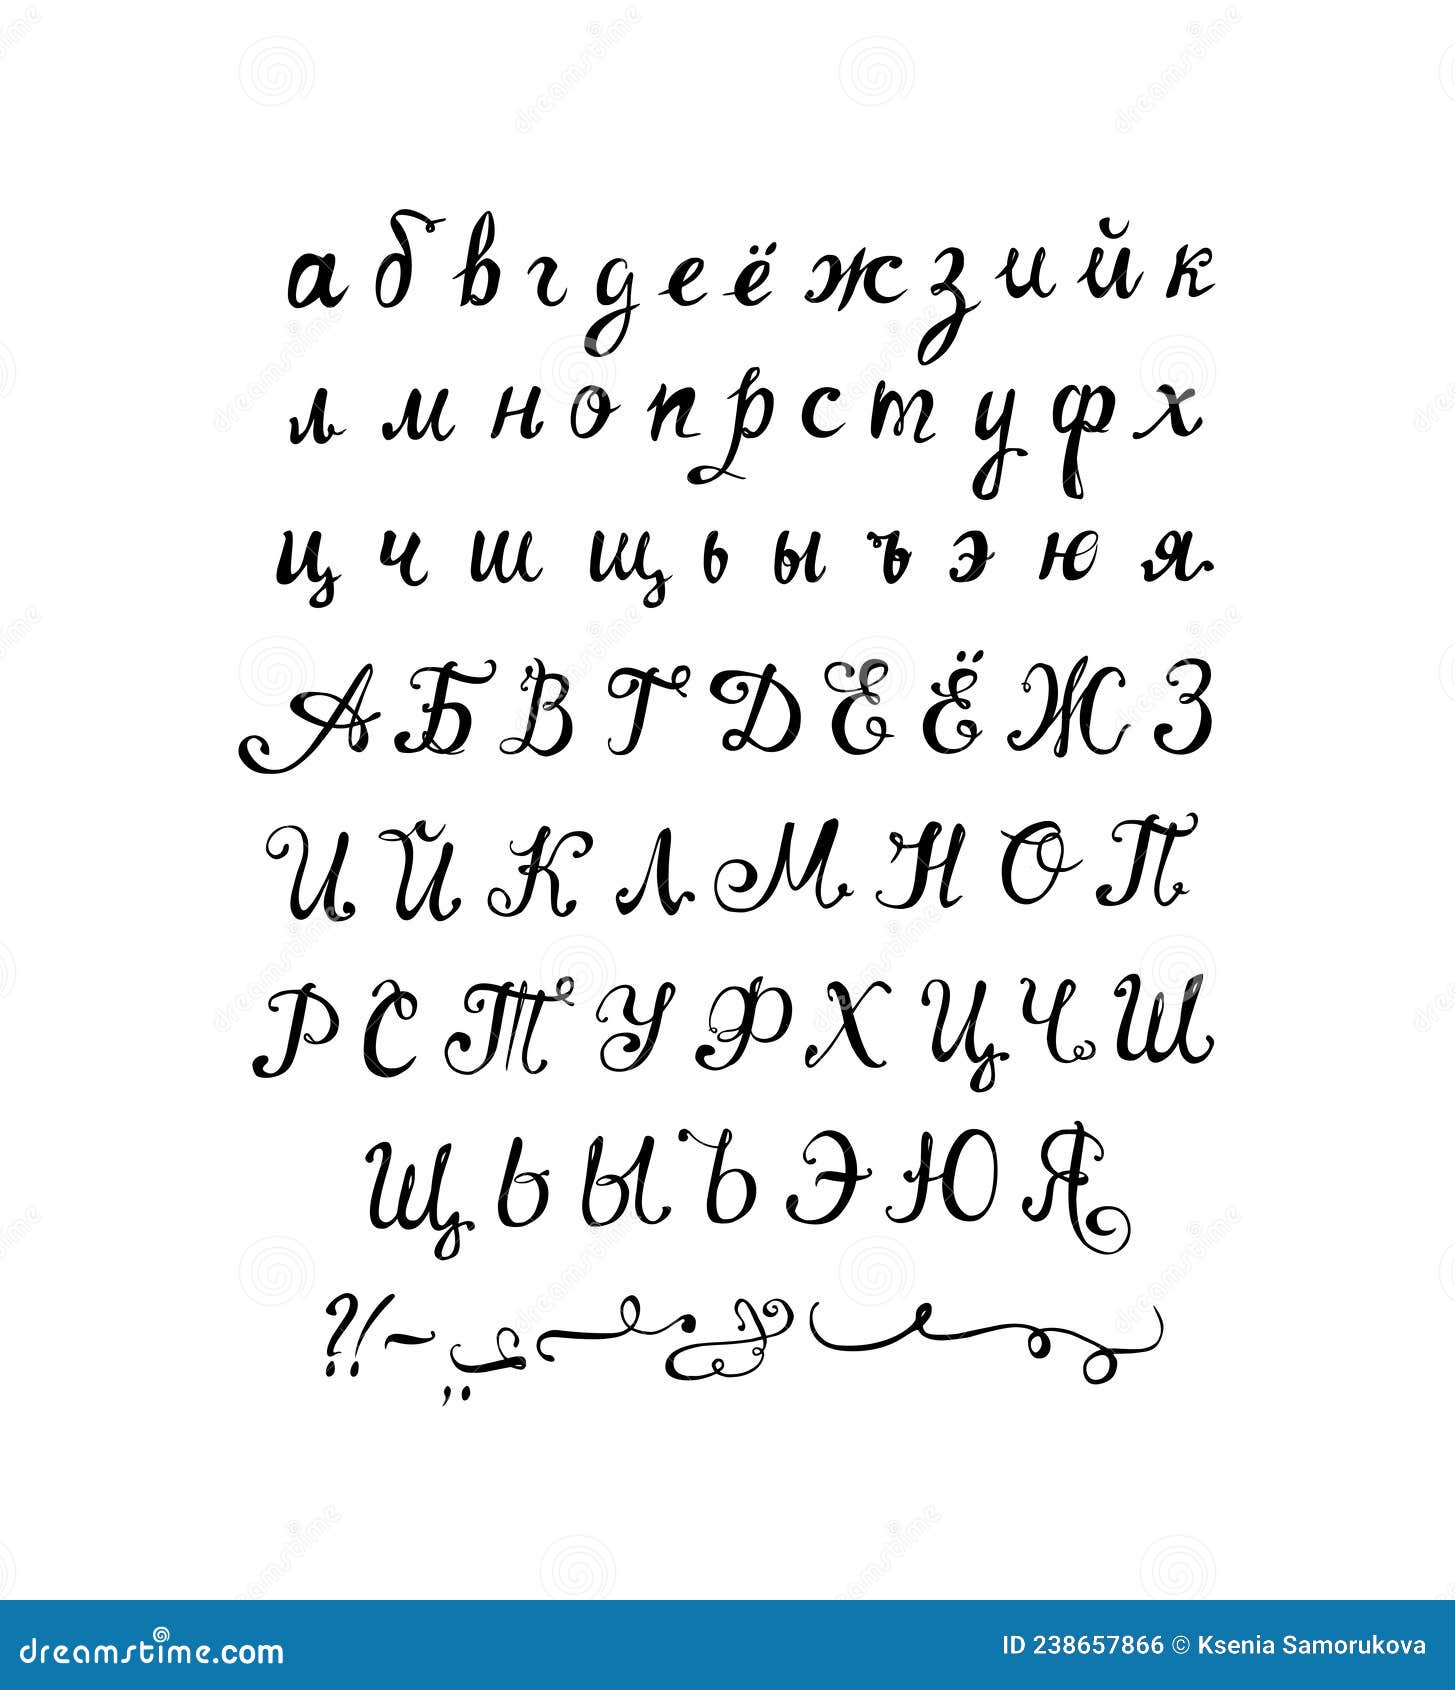 а б в г д е ё ж з и й к
л м н о п р с т у ф х
ц ч ш щ ь ы ъ э ю я
А Б В Г Д Е Ё Ж З
И Й К Л М Н О П
Р С Т У Ф Х Ц Ч Ш
Щ Ь Ы Ъ Э Ю Я
? ! - , .
dreamstime.com ID 238657866 © Ksenia Samorukova